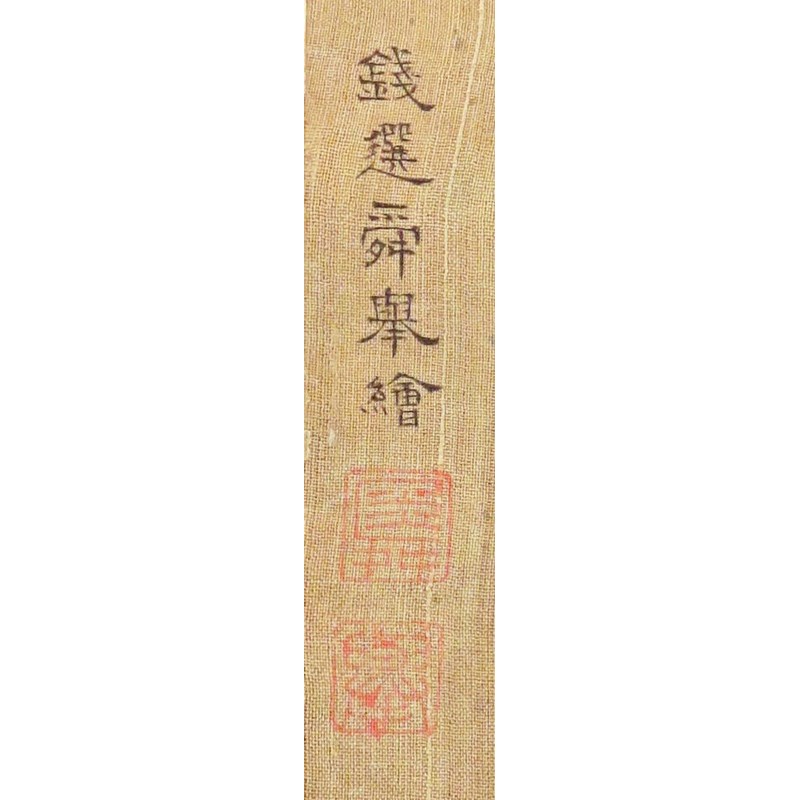 錢選舜舉繪